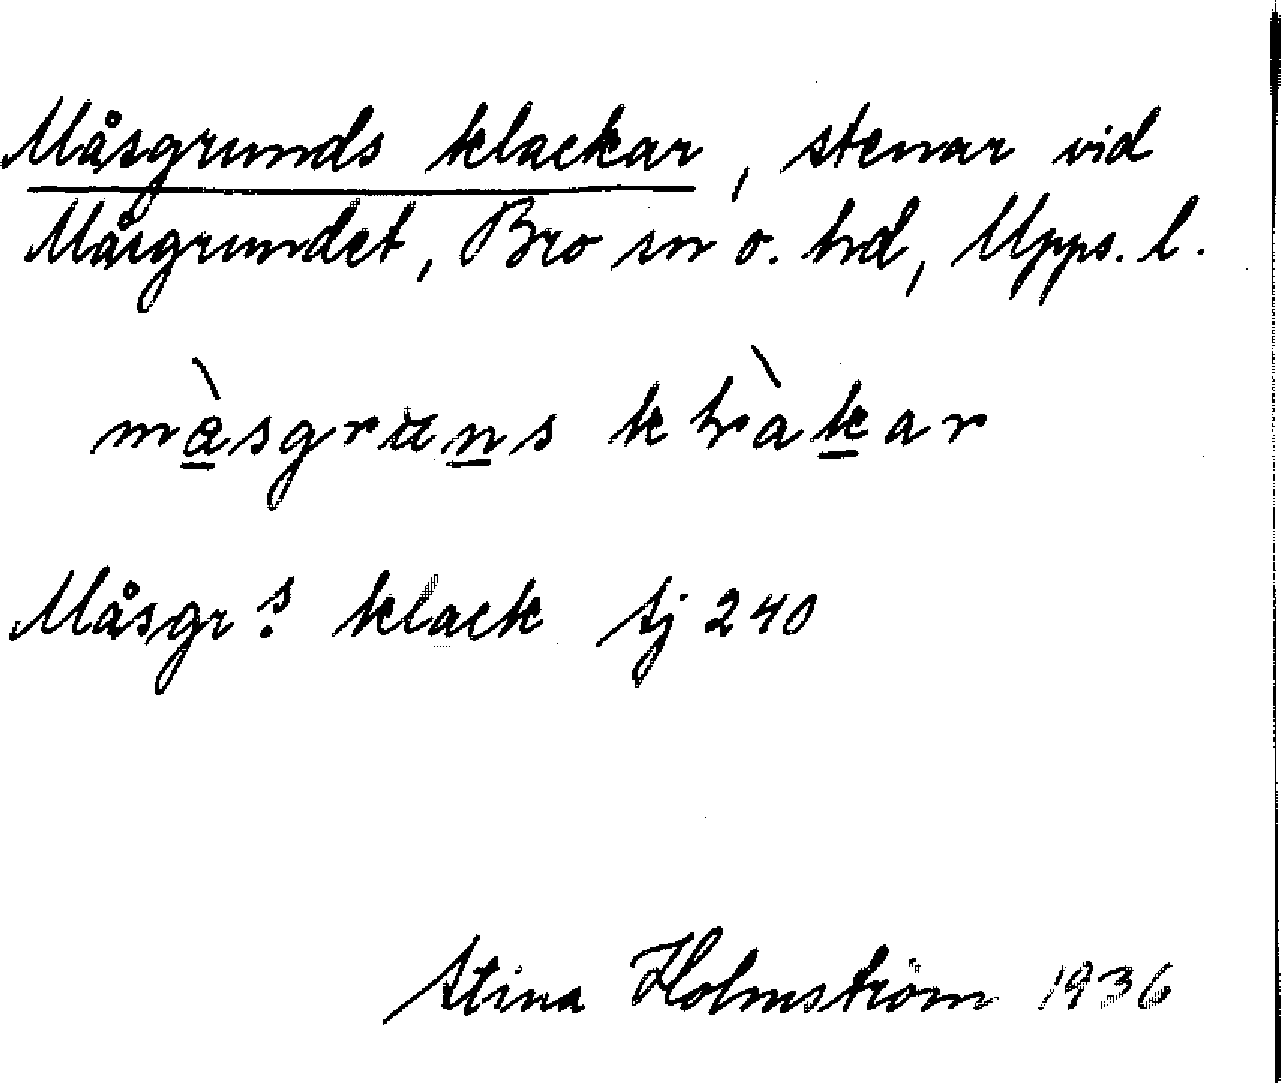 Måsgrunds klackar, stenar vid
Måsgrundet, Bro sn o. hd, Upps. l.
Måsgr:s klack Sj 240
Stina Holmström 1936